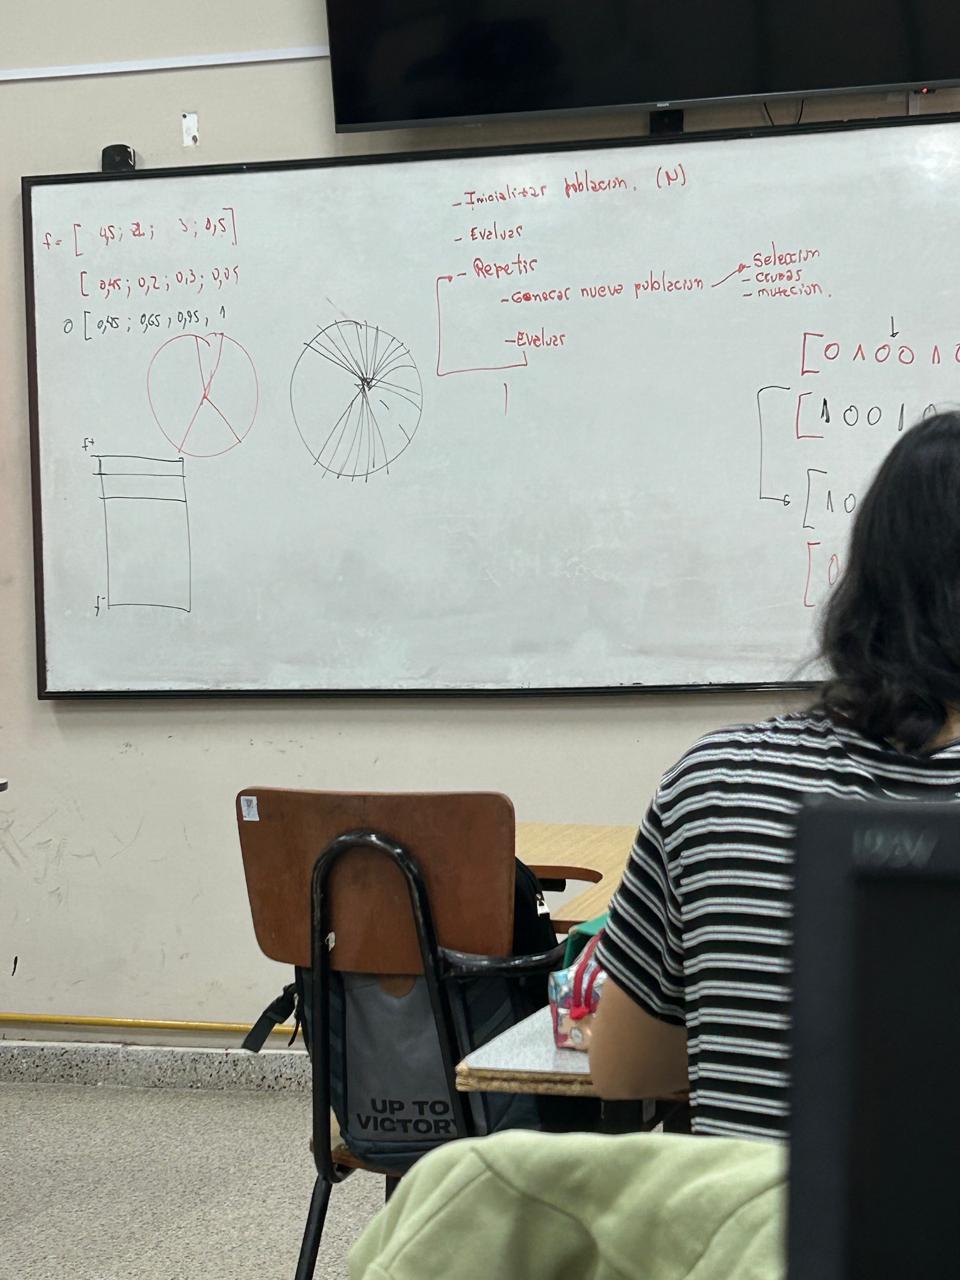 f = [ 4,5; 2; 3; 0,5]
[ 0,45; 0,2; 0,3; 0,05
0 [ 0,45; 0,65; 0,95; 1
f+
f-
- Inicializar población. (N)
- Evaluar
- Repetir
- Generar nueva población
- Selección
- cruzas
- mutación.
- Evaluar
[ 0 1 0 0 1 0
[ 1 0 0 1 0
[ 1 0
[ 0
UP TO
VICTORY